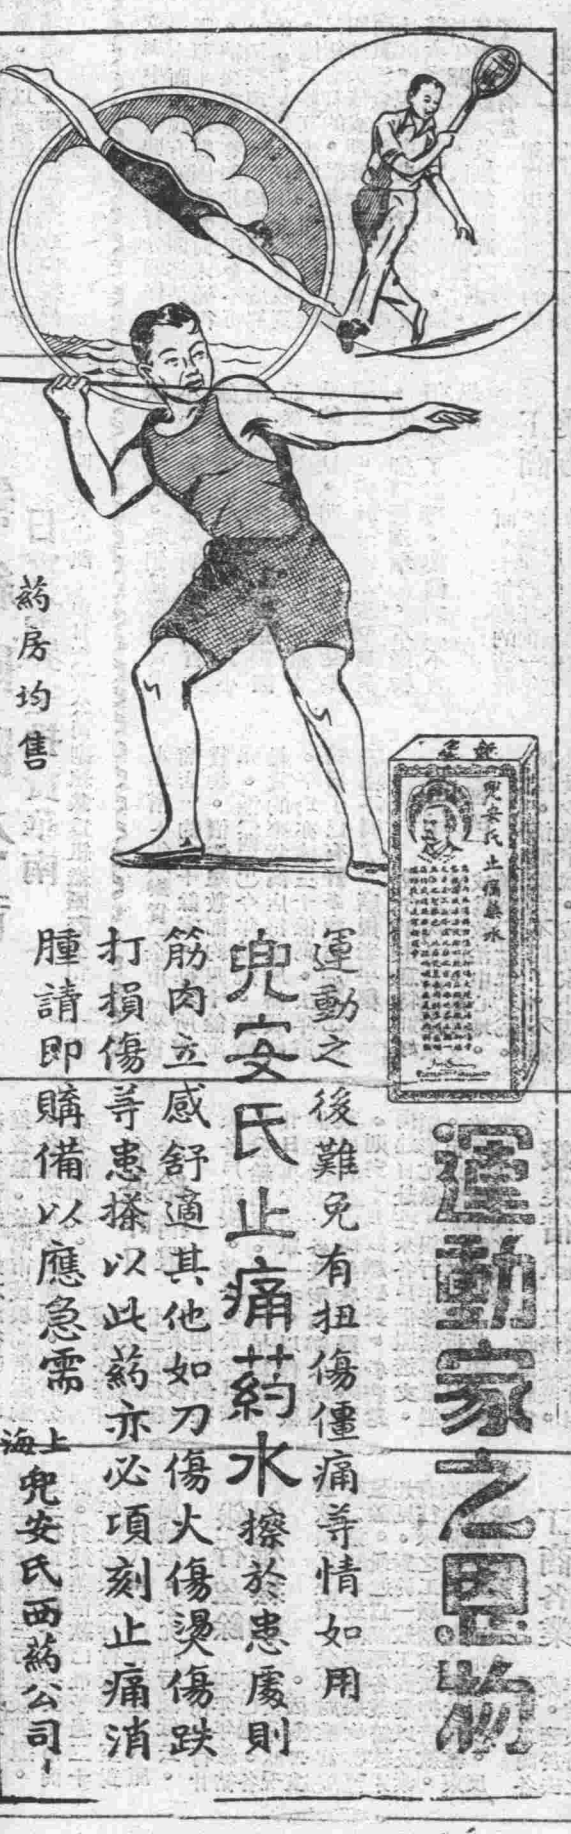 運動家之恩物
兜安氏止痛藥水
運動之後難免有扭傷僵痛等情如用
兜安氏止痛葯水擦於患處則
筋肉立感舒適其他如刀傷火傷燙傷跌
打損傷等患搽以此葯亦必頃刻止痛消
腫請即購備以應急需
上海兜安氏西葯公司
葯房均售